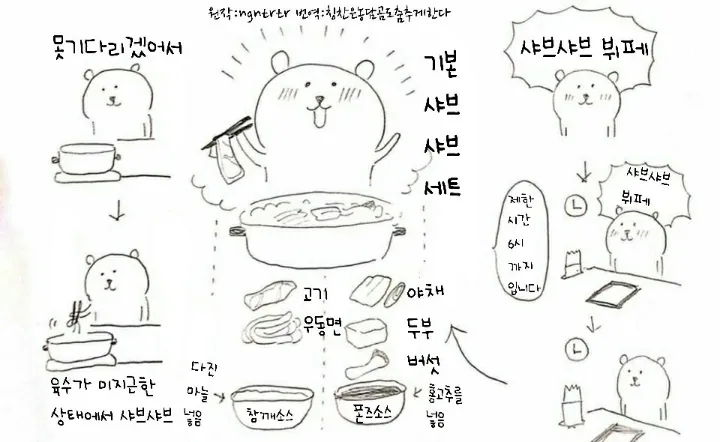 원작:ngntrtr 번역:칭찬은농담곰도춤추게한다
못기다리겠어서
육수가 미지근한
상태에서 샤브샤브
기본
샤브
샤브
세트
고기
야채
우동면
두부
버섯
다진
마늘
넣음
참깨소스
폰즈소스
홍고추를
넣음
샤브샤브 뷔페
샤브샤브
뷔페
제한
시간
6시
까지
입니다